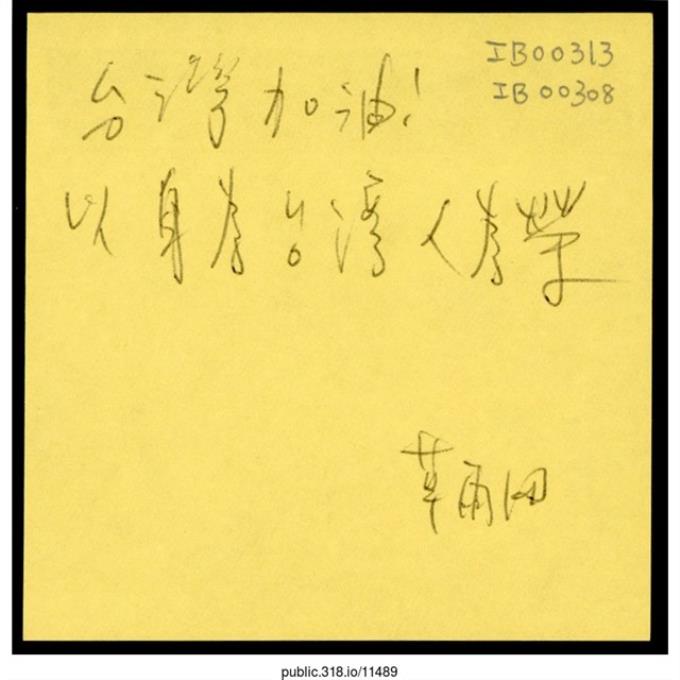 IB00313
IB00308
台灣加油!
以身為台灣人為榮
草雨田
public.318.io/11489